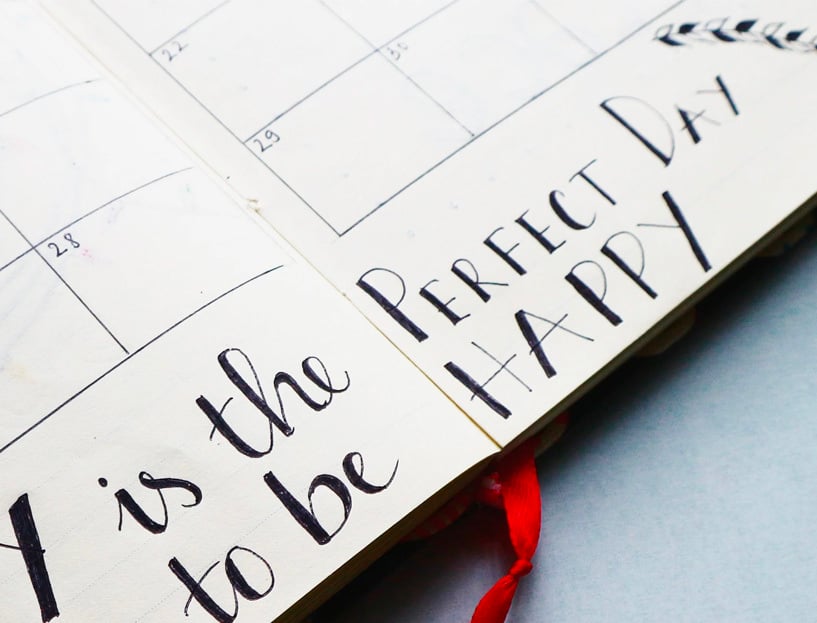 22
30
29
28
Y is the PERFECT DAY
to be HAPPY